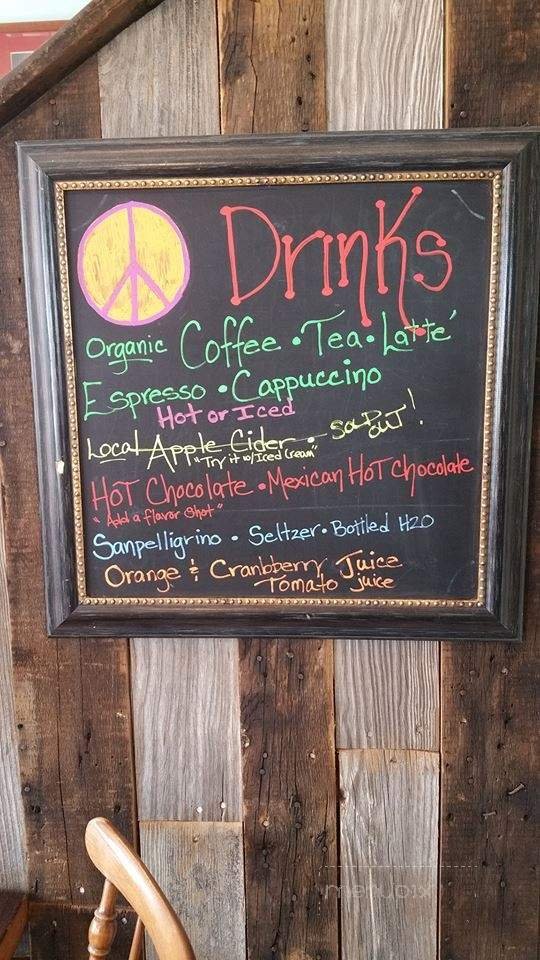 Drinks
Organic Coffee • Tea • Latte'
Espresso • Cappuccino
Hot or Iced
Local Apple Cider • Sold out!
"Try it w/Iced Cream"
Hot Chocolate • Mexican Hot Chocolate
"Add a flavor shot"
Sanpelligrino • Seltzer • Bottled H2O
Orange & Cranbberry Juice
Tomato juice